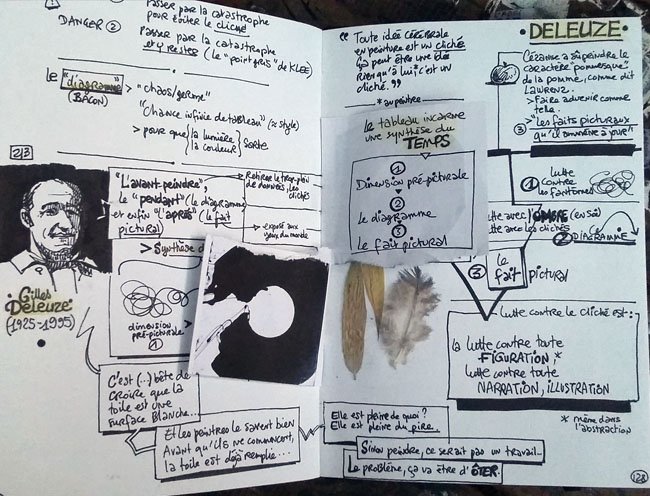 Passer par la catastrophe
pour éviter le cliché
DANGER ②
Passer par la catastrophe
et y rester (le "point gris" de KLEE)
le "diagramme"
(BACON)
> "chaos/germe"
"Chance infinie de tableau" (≈ style)
> pour que la lumière / la couleur / sorte
2/3
Gilles
Deleuze
(1925-1995)
"L'avant-peindre",
le "pendant" (le diagramme)
et enfin "l'après" (le fait
pictural)
Retirer le trop-plein
de données, les
clichés
> exposé aux
yeux du monde
> Synthèse
dimension
pré-picturale >
①
C'est (...) bête de
croire que la
toile est une
surface blanche...
Et les peintres le savent bien
Avant qu'ils ne commencent,
la toile est déjà remplie...
"Toute idée cérébrale
en peinture est un cliché
Ça peut être une idée
rien qu'à lui, c'est un
cliché."
* au peintre
le tableau incarne
une synthèse du
TEMPS
①
Dimension pré-picturale
②
le diagramme
③
le fait pictural
Elle est pleine de quoi ?
Elle est pleine du pire...
Sinon peindre, ce serait pas un travail...
Le problème, ça va être d'ÔTER.
DELEUZE
Cézanne a su peindre le
caractère "pommesque"
de la pomme, comme dit
Lawrence.
> Faire advenir comme
telle.
③ > "les faits picturaux
qu'il amène à jour"
① lutte
contre
les fantômes
lutte avec l'OMBRE (en soi)
lutte avec les clichés
② DIAGRAMME
③ le
fait pictural
lutte contre le cliché est :
la lutte contre toute
FIGURATION *
lutte contre toute
NARRATION, ILLUSTRATION
* même dans
l'abstraction
128